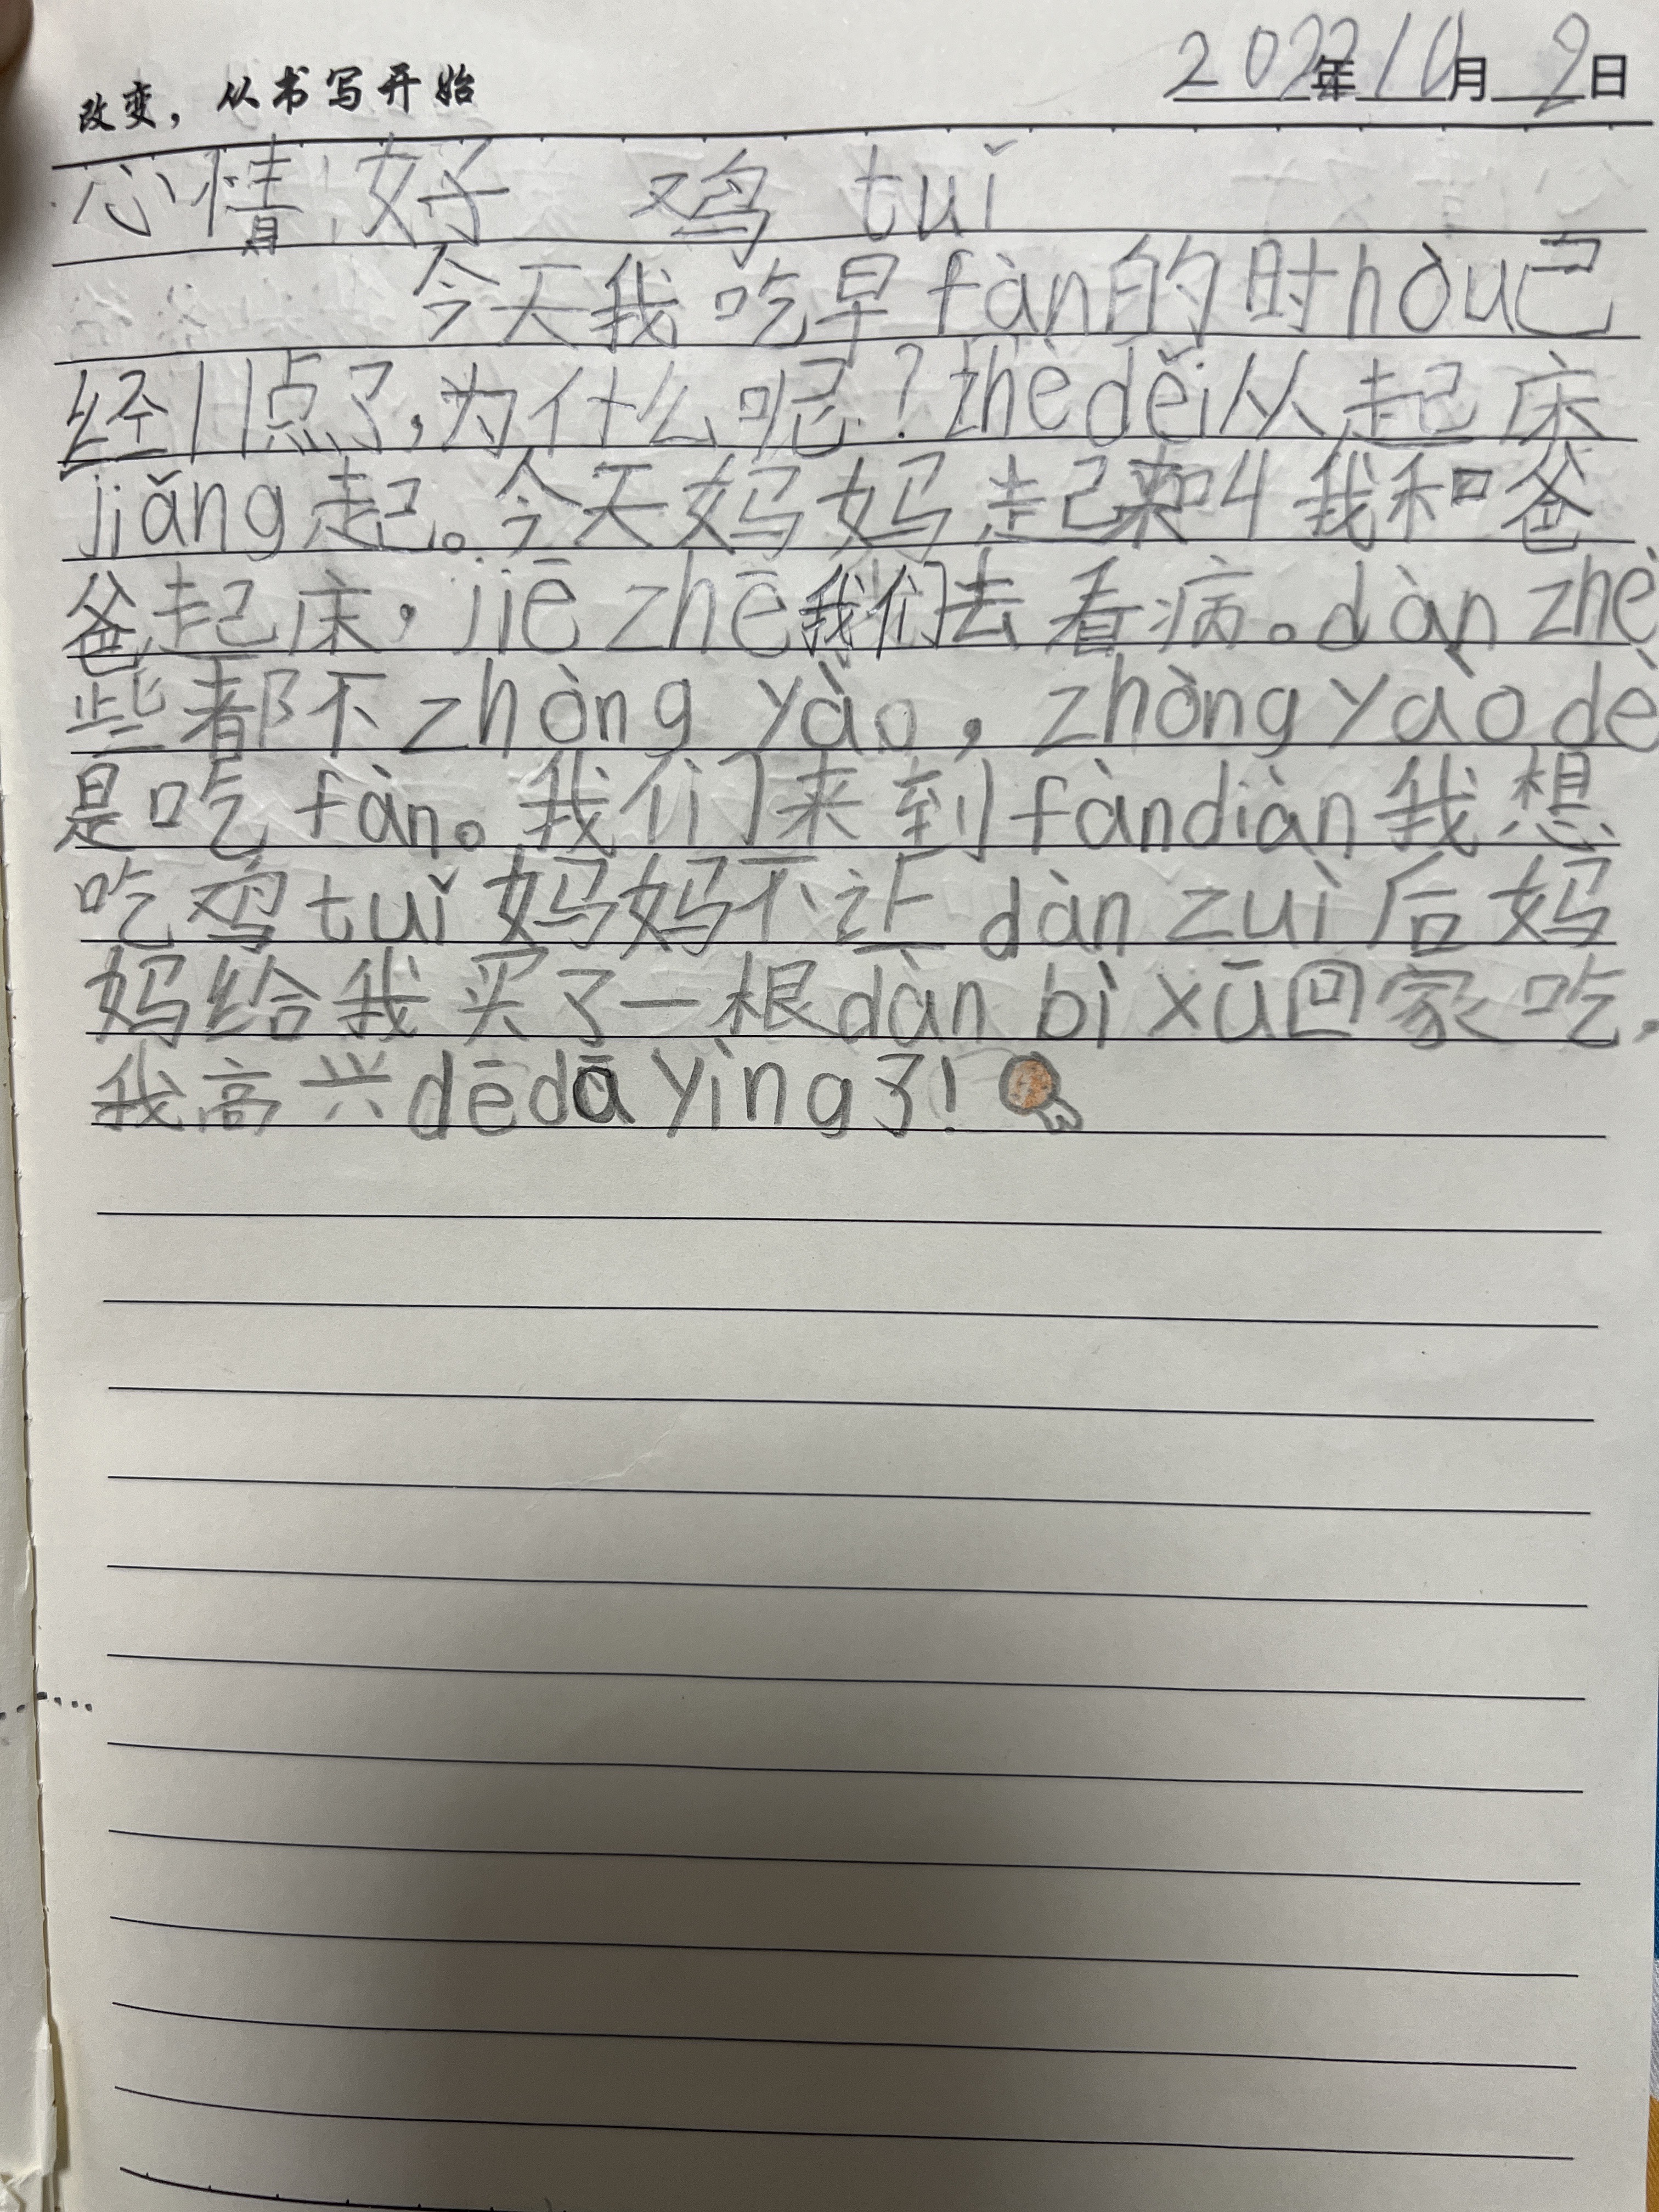 改变，从书写开始 2022年10月9日
心情：好 鸡tuǐ
今天我吃早fàn的时hòu已
经11点了，为什么呢？zhèděi从起床
jiǎng起。今天妈妈起来叫我和爸
爸起床，jiē zhē我们去看病。dàn zhè
些都不zhòng yào，zhòng yào dè
是吃fàn。我们来到fàndiàn我想
吃鸡tuǐ妈妈不让dàn zuì后妈
妈给我买了一根dàn bì xū回家吃，
我高兴dēdā yìng了！